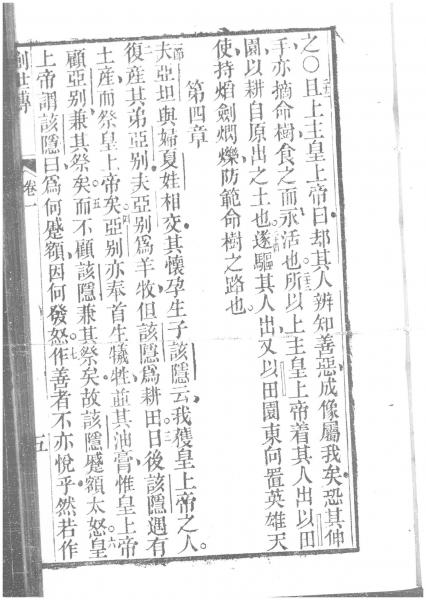 之○且上主皇上帝曰却其人辨知善惡成像屬我矣恐其伸
手亦摘命樹食之而永活也。所以上主皇上帝着其人出以田
園以耕自原出之土也遂驅其人出又以田園東向置英雄天
使持焰劍燜爍防範命樹之路也。
第四章
節夫亞坦與婦夏娃相交其懷孕生子該隱云我獲皇上帝之人。
復產其弟亞別夫亞別爲羊牧但該隱爲耕田日後該隱遇有
土產而祭皇上帝矣四亞別亦奉首生犧牲並其油膏惟皇上帝
顧亞別兼其祭矣五而不顧該隱兼其祭矣故該隱蹙額太怒六皇
上帝謂該隱曰爲何蹙額因何發怒作善者不亦悅乎然若作
創世傳
卷一
五